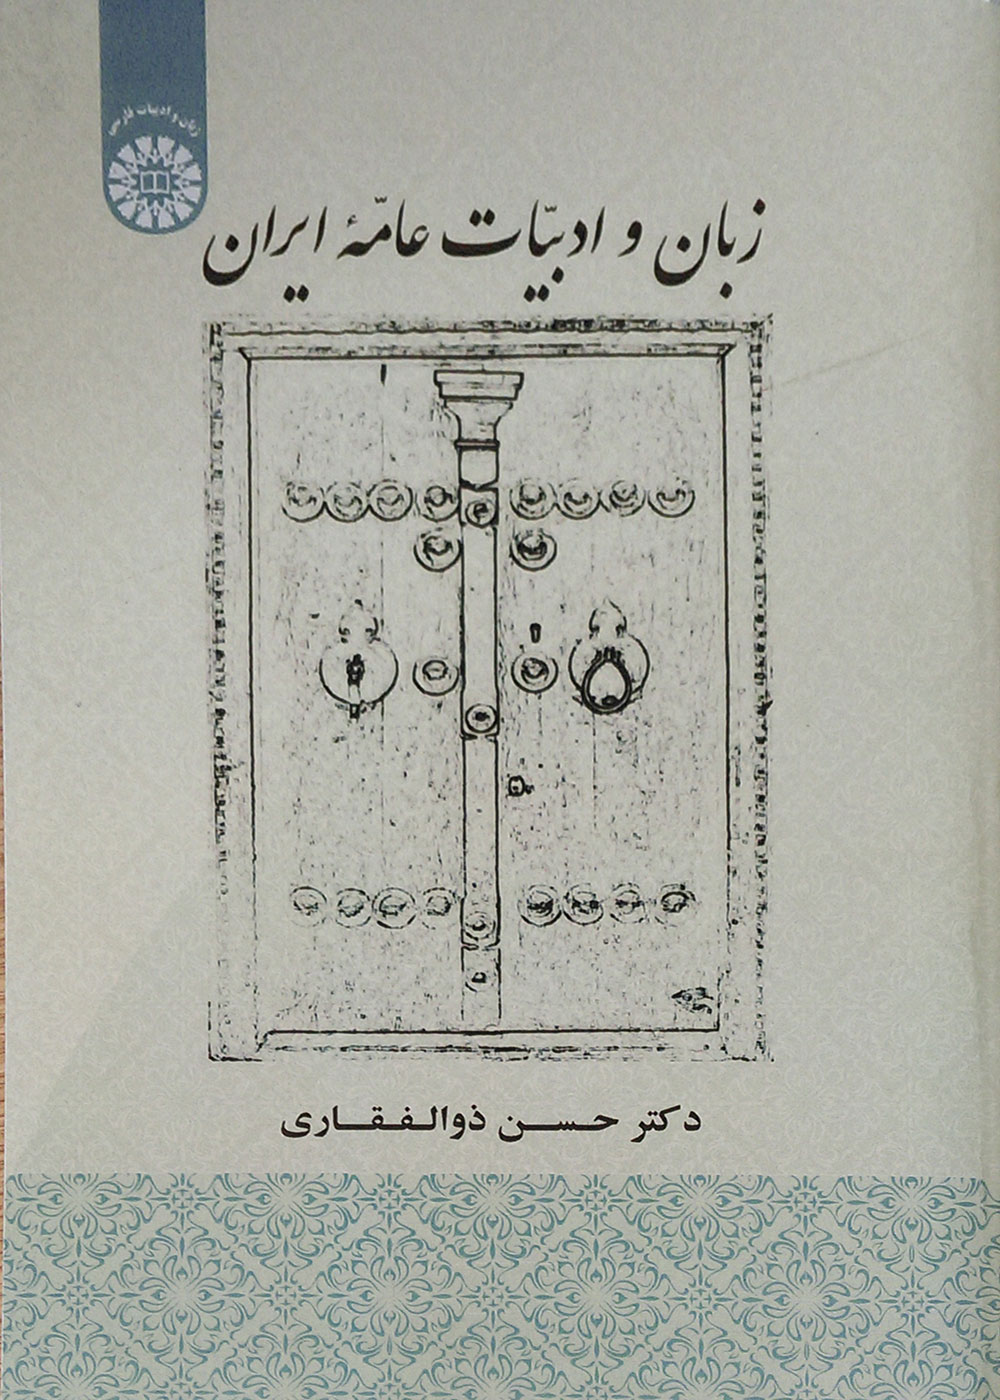 زبان و ادبیات فارسی
زبان و ادبیّات عامّهٔ ایران
دکتر حسن ذوالفقاری